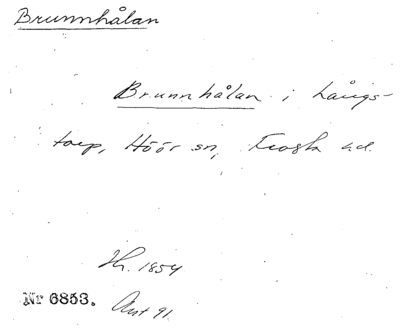 Brunnhålan
Brunnhålan i Långs-
torp, Höör sn, Frosta hd.
Hr. 1854
Nr 6853. Ant 91.